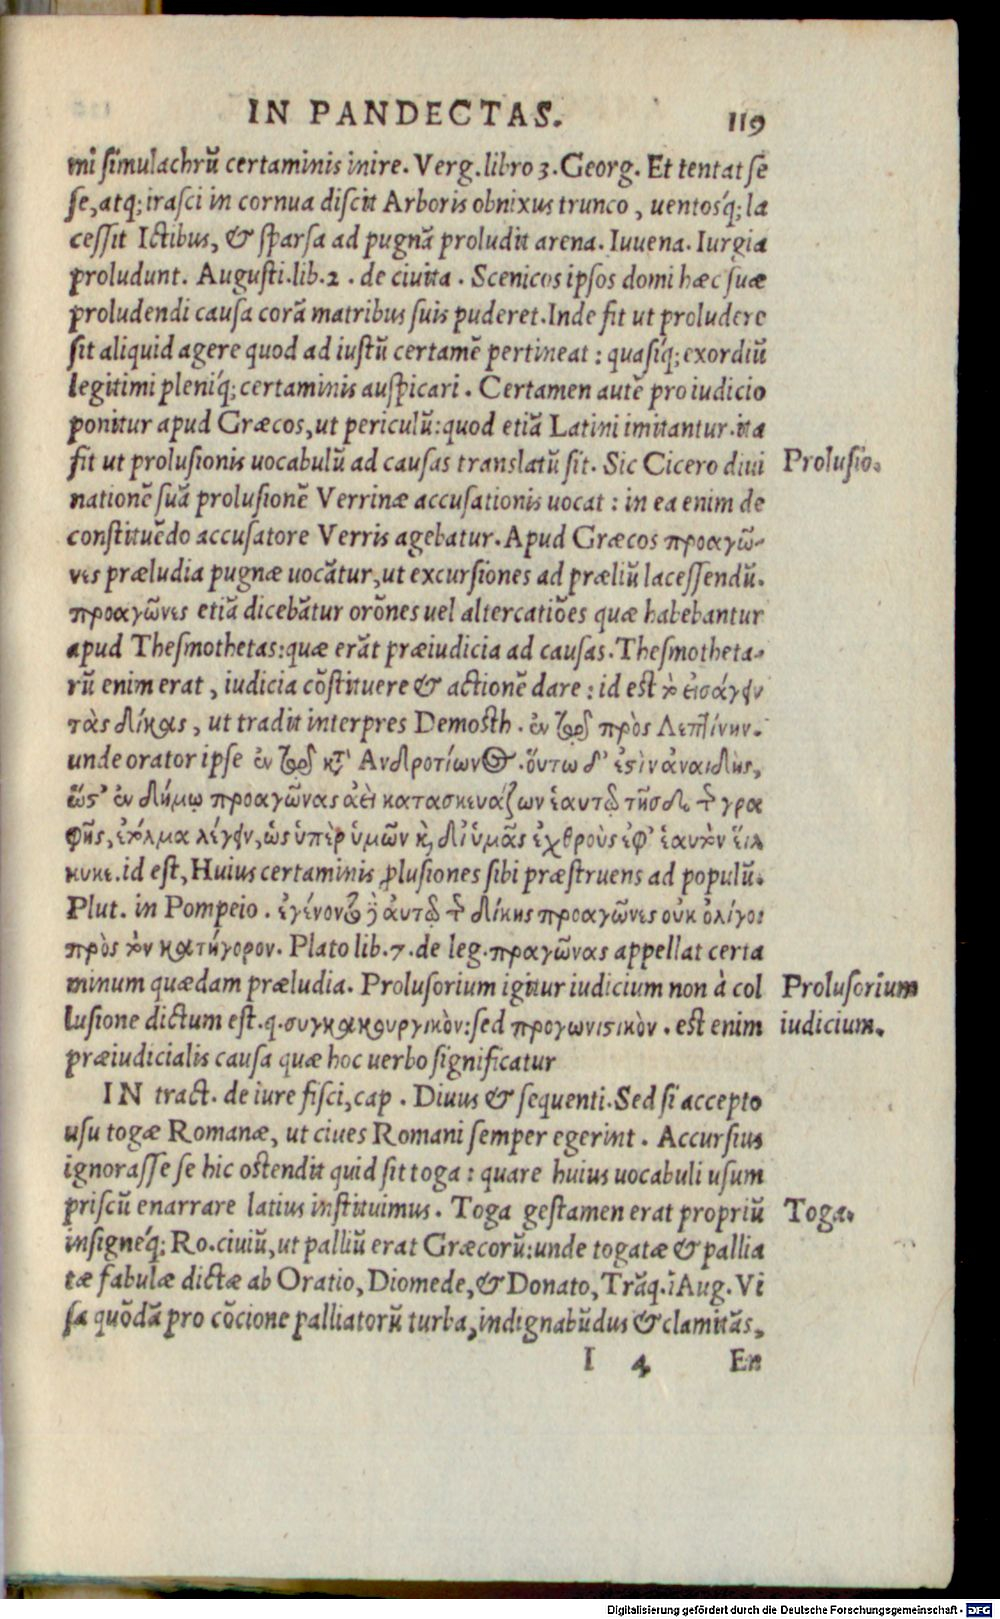 IN PANDECTAS. 119
mi simulachrū certaminis inire. Verg. libro 3. Georg. Et tentat se
se, atq; irasci in cornua discit Arboris obnixus trunco, uentosq́; la
cessit Ictibus, & sparsa ad pugnā proludit arena. Iuuena. Iurgia
proludunt. Augusti. lib. 2. de ciuita. Scenicos ipsos domi hæc suæ
proludendi causa corā matribus suis puderet. Inde fit ut proludere
sit aliquid agere quod ad iustū certamē pertineat: quasíq; exordiū
legitimi pleníq; certaminis auspicari. Certamen autē pro iudicio
ponitur apud Græcos, ut periculū: quod etiā Latini imitantur. ita
fit ut prolusionis uocabulū ad causas translatū sit. Sic Cicero diui
Prolusio.
nationē suā prolusionē Verrinæ accusationis uocat: in ea enim de
constituēdo accusatore Verris agebatur. Apud Græcos προαγῶ-
νες præludia pugnæ uocātur, ut excursiones ad præliū lacessendū.
προαγῶνες etiā dicebātur orōnes uel altercatiōes quæ habebantur
apud Thesmothetas: quæ erāt præiudicia ad causas. Thesmotheta-
rū enim erat, iudicia cōstituere & actionē dare: id est τὸ εἰσάγειν
τὰς δίκας, ut tradit interpres Demosth. ἐν τῷ πρὸς Λεπτίνην.
unde orator ipse ἐν τῷ κατ' Ανδροτίωνος. οὕτω δ' ἐστὶν ἀναιδὴς,
ὥστ' ἐν δήμῳ προαγῶνας ἀεὶ κατασκευάζων ἑαυτῷ τῆσδε τῆς γρα
φῆς, ἐτόλμα λέγειν, ὡς ὑπὲρ ὑμῶν καὶ δι' ὑμᾶς ἐχθροὺς ἐφ' ἑαυτὸν εἵλ
κυκε. id est, Huius certaminis ꝓlusiones sibi præstruens ad populū.
Plut. in Pompeio. ἐγένοντο δὲ αὐτῷ τῆς δίκης προαγῶνες οὐκ ὀλίγοι
πρὸς τὸν κατήγορον. Plato lib. 7. de leg. πραγῶνας appellat certa
minum quædam præludia. Prolusorium igitur iudicium non à col
Prolusorium
lusione dictum est. q. συγκακουργικὸν: sed προγωνιστικὸν. est enim
iudicium.
præiudicialis causa quæ hoc uerbo significatur
IN tract. de iure fisci, cap. Diuus & sequenti. Sed si accepto
usu togæ Romanæ, ut ciues Romani semper egerint. Accursius
ignorasse se hic ostendit quid sit toga: quare huius uocabuli usum
priscū enarrare latius instituimus. Toga gestamen erat propriū
Toga.
insignéq; Ro. ciuiū, ut palliū erat Græcorū: unde togatæ & pallia
tæ fabulæ dictæ ab Oratio, Diomede, & Donato, Trāq. ī Aug. Vi
sa quōdā pro cōcione palliatorū turba, indignabūdus & clamitās,
I 4 En
Digitalisierung gefördert durch die Deutsche Forschungsgemeinschaft - DFG